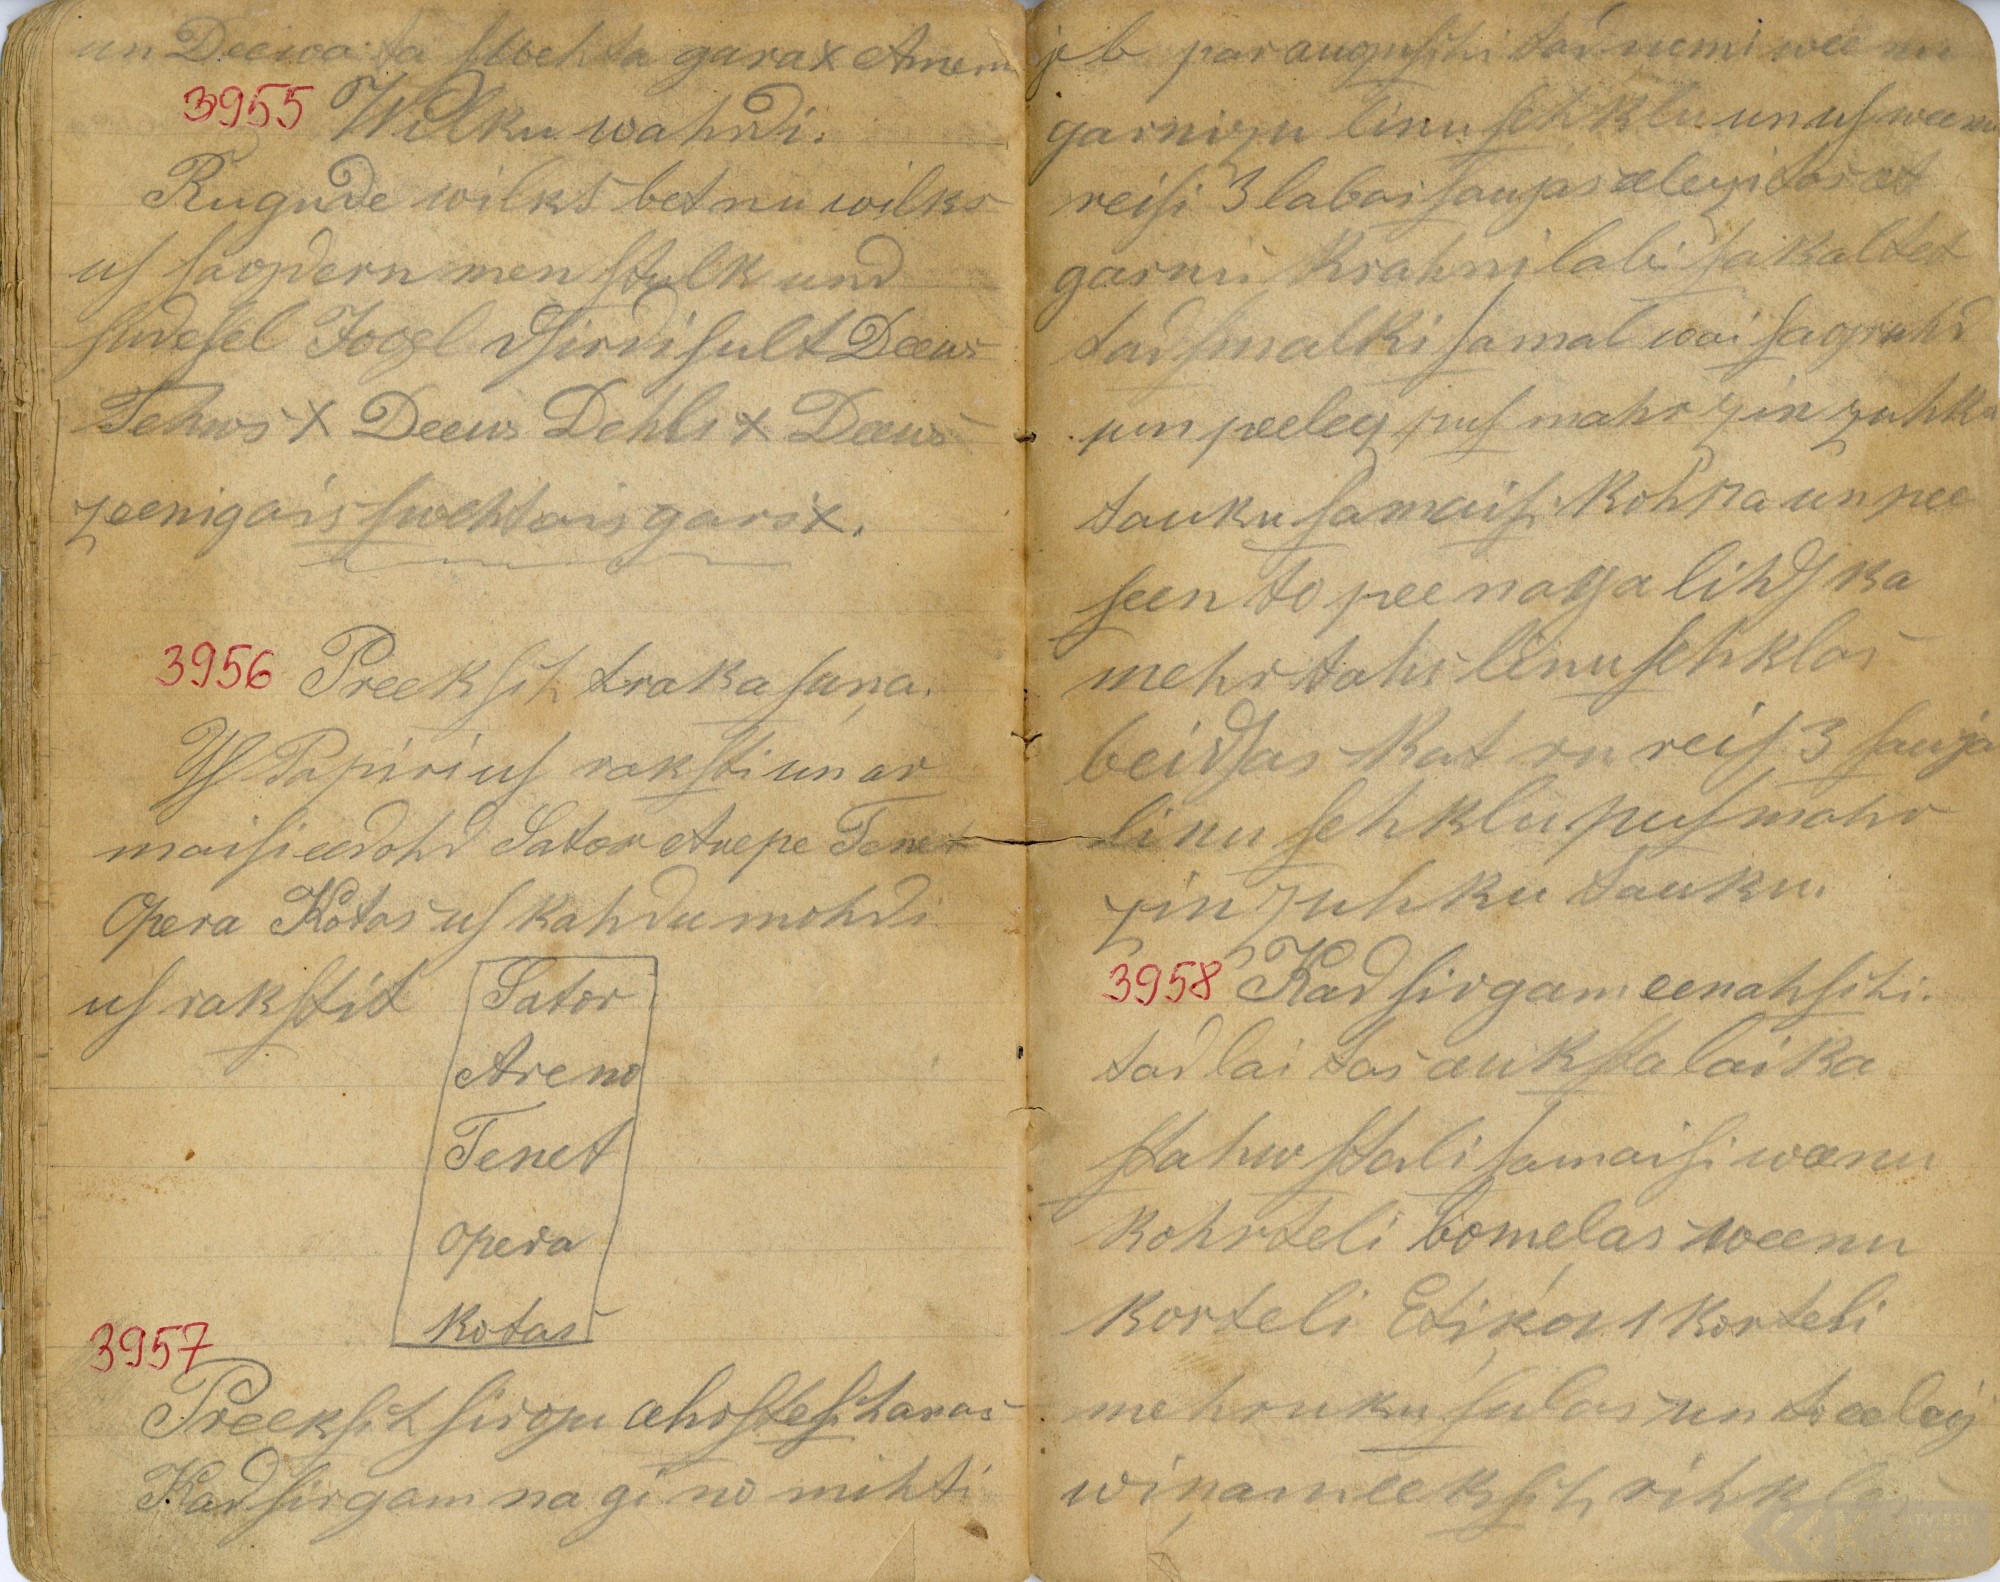 un Deewa ta swehta gara x Amen
3955 Wilku wahrdi.
Rugude wilks bet nu wilks
us saogdern men stulk und
sudesel Jogel dsirdisult Deews
Tehws x Deews Dehls x Deews
zeenigais swehtais gars x.
3956 Preeksch traka suņa.
Us Papiri us raksti un ar
maisi eedohd Sator Arepo Tenet
Opera Kotas us kahdu mohdi
us rakstit
Sator
Areno
Tenet
Opera
Kotas
3957
Preeksch sirgu ahrsteschanas
Kad sirgam nagi no mihti
jeb par auguschi tad nemi weenu
garnizu linu sehklu un us weenu
reisi 3 labas saujas eleiji tos et
garni krahni labi sakaltet
tad smalki samal wai sagruhd
un peeley pus mahrzin zuhku
tauku samaisi kohpa un pee
seen to pee naga lihds ka
mehr tahs linu sehklas
beidsas Kat ru reis 3 sauja
linu sehklu pus mahr
zin zuhku tauku.
3958 Kad sirgam eenahschi.
tad lai tas aukstalaika
stahw stali samaisi weenu
kohrteli bomelas weenu
korteli Etiķa 1 korteli
mehruku sulas un to eeley
wiņam eeksch rihkles